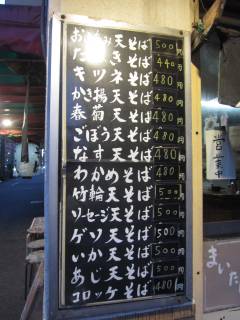 お好み天そば 500円
たぬきそば 440円
キツネそば 480円
かき揚天そば 480円
春菊天そば 480円
ごぼう天そば 480円
なす天そば 480円
わかめそば 480円
竹輪天そば 500円
ソーセージ天そば 500円
ゲソ天そば 500円
いか天そば 500円
あじ天そば 500円
コロッケそば 480円
営業中
まいた